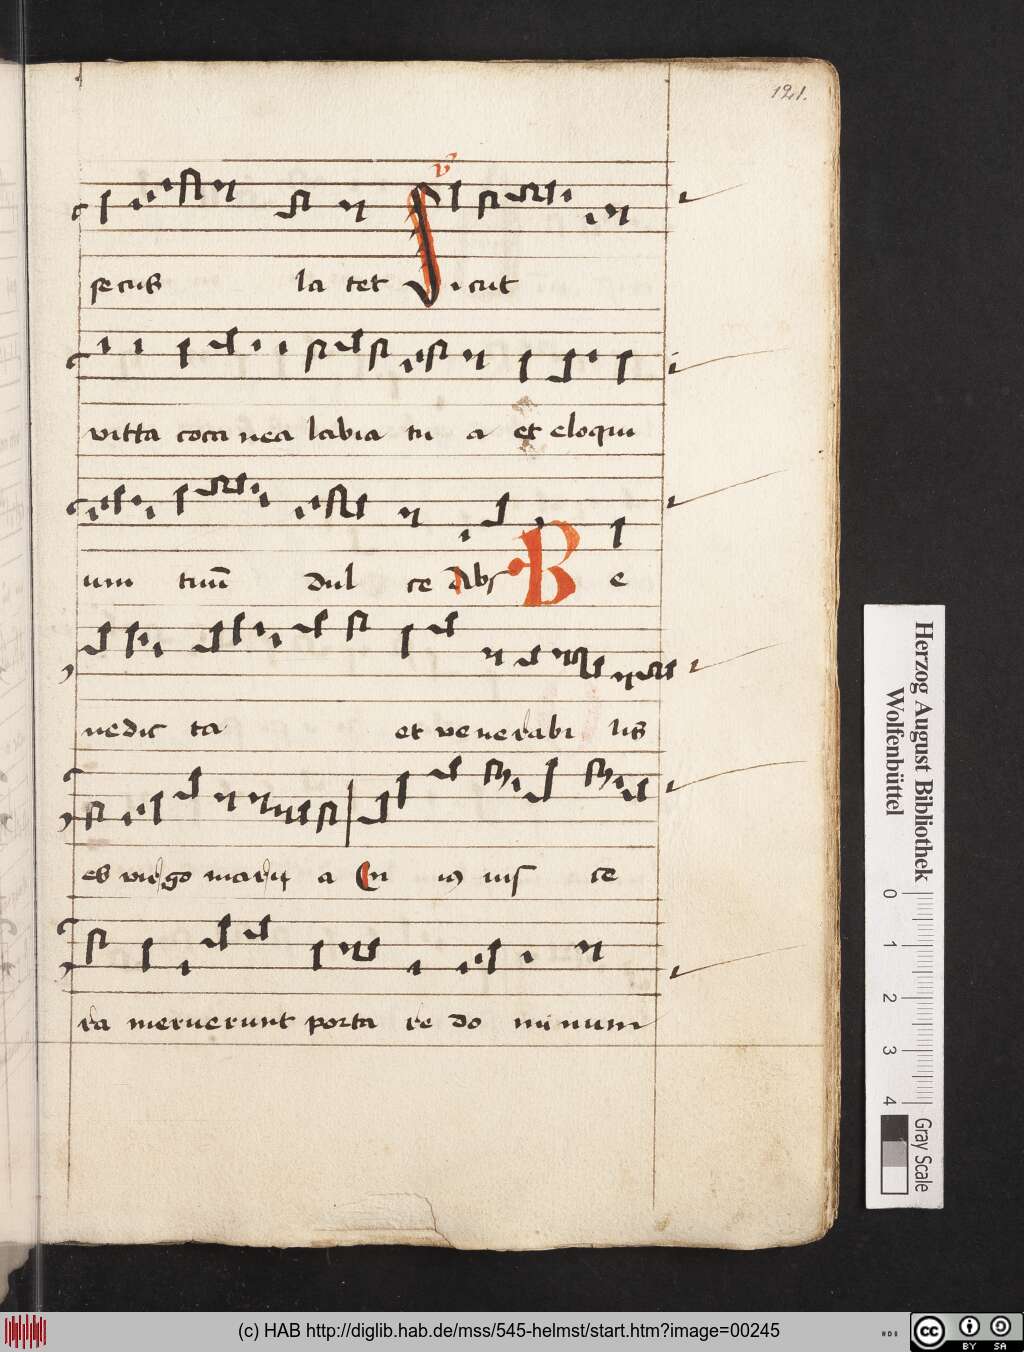 121.
v
secus la tet Sicut
vitta cocci nea labia tu a et eloqui
um tuū dul ce
Be
nedic ta et venerabi lis
es virgo mari a
ra meruerunt porta re do minum
Herzog August Bibliothek
Wolfenbüttel
0 1 2 3 4
Gray Scale
(c) HAB http://diglib.hab.de/mss/545-helmst/start.htm?image=00245
cc BY SA